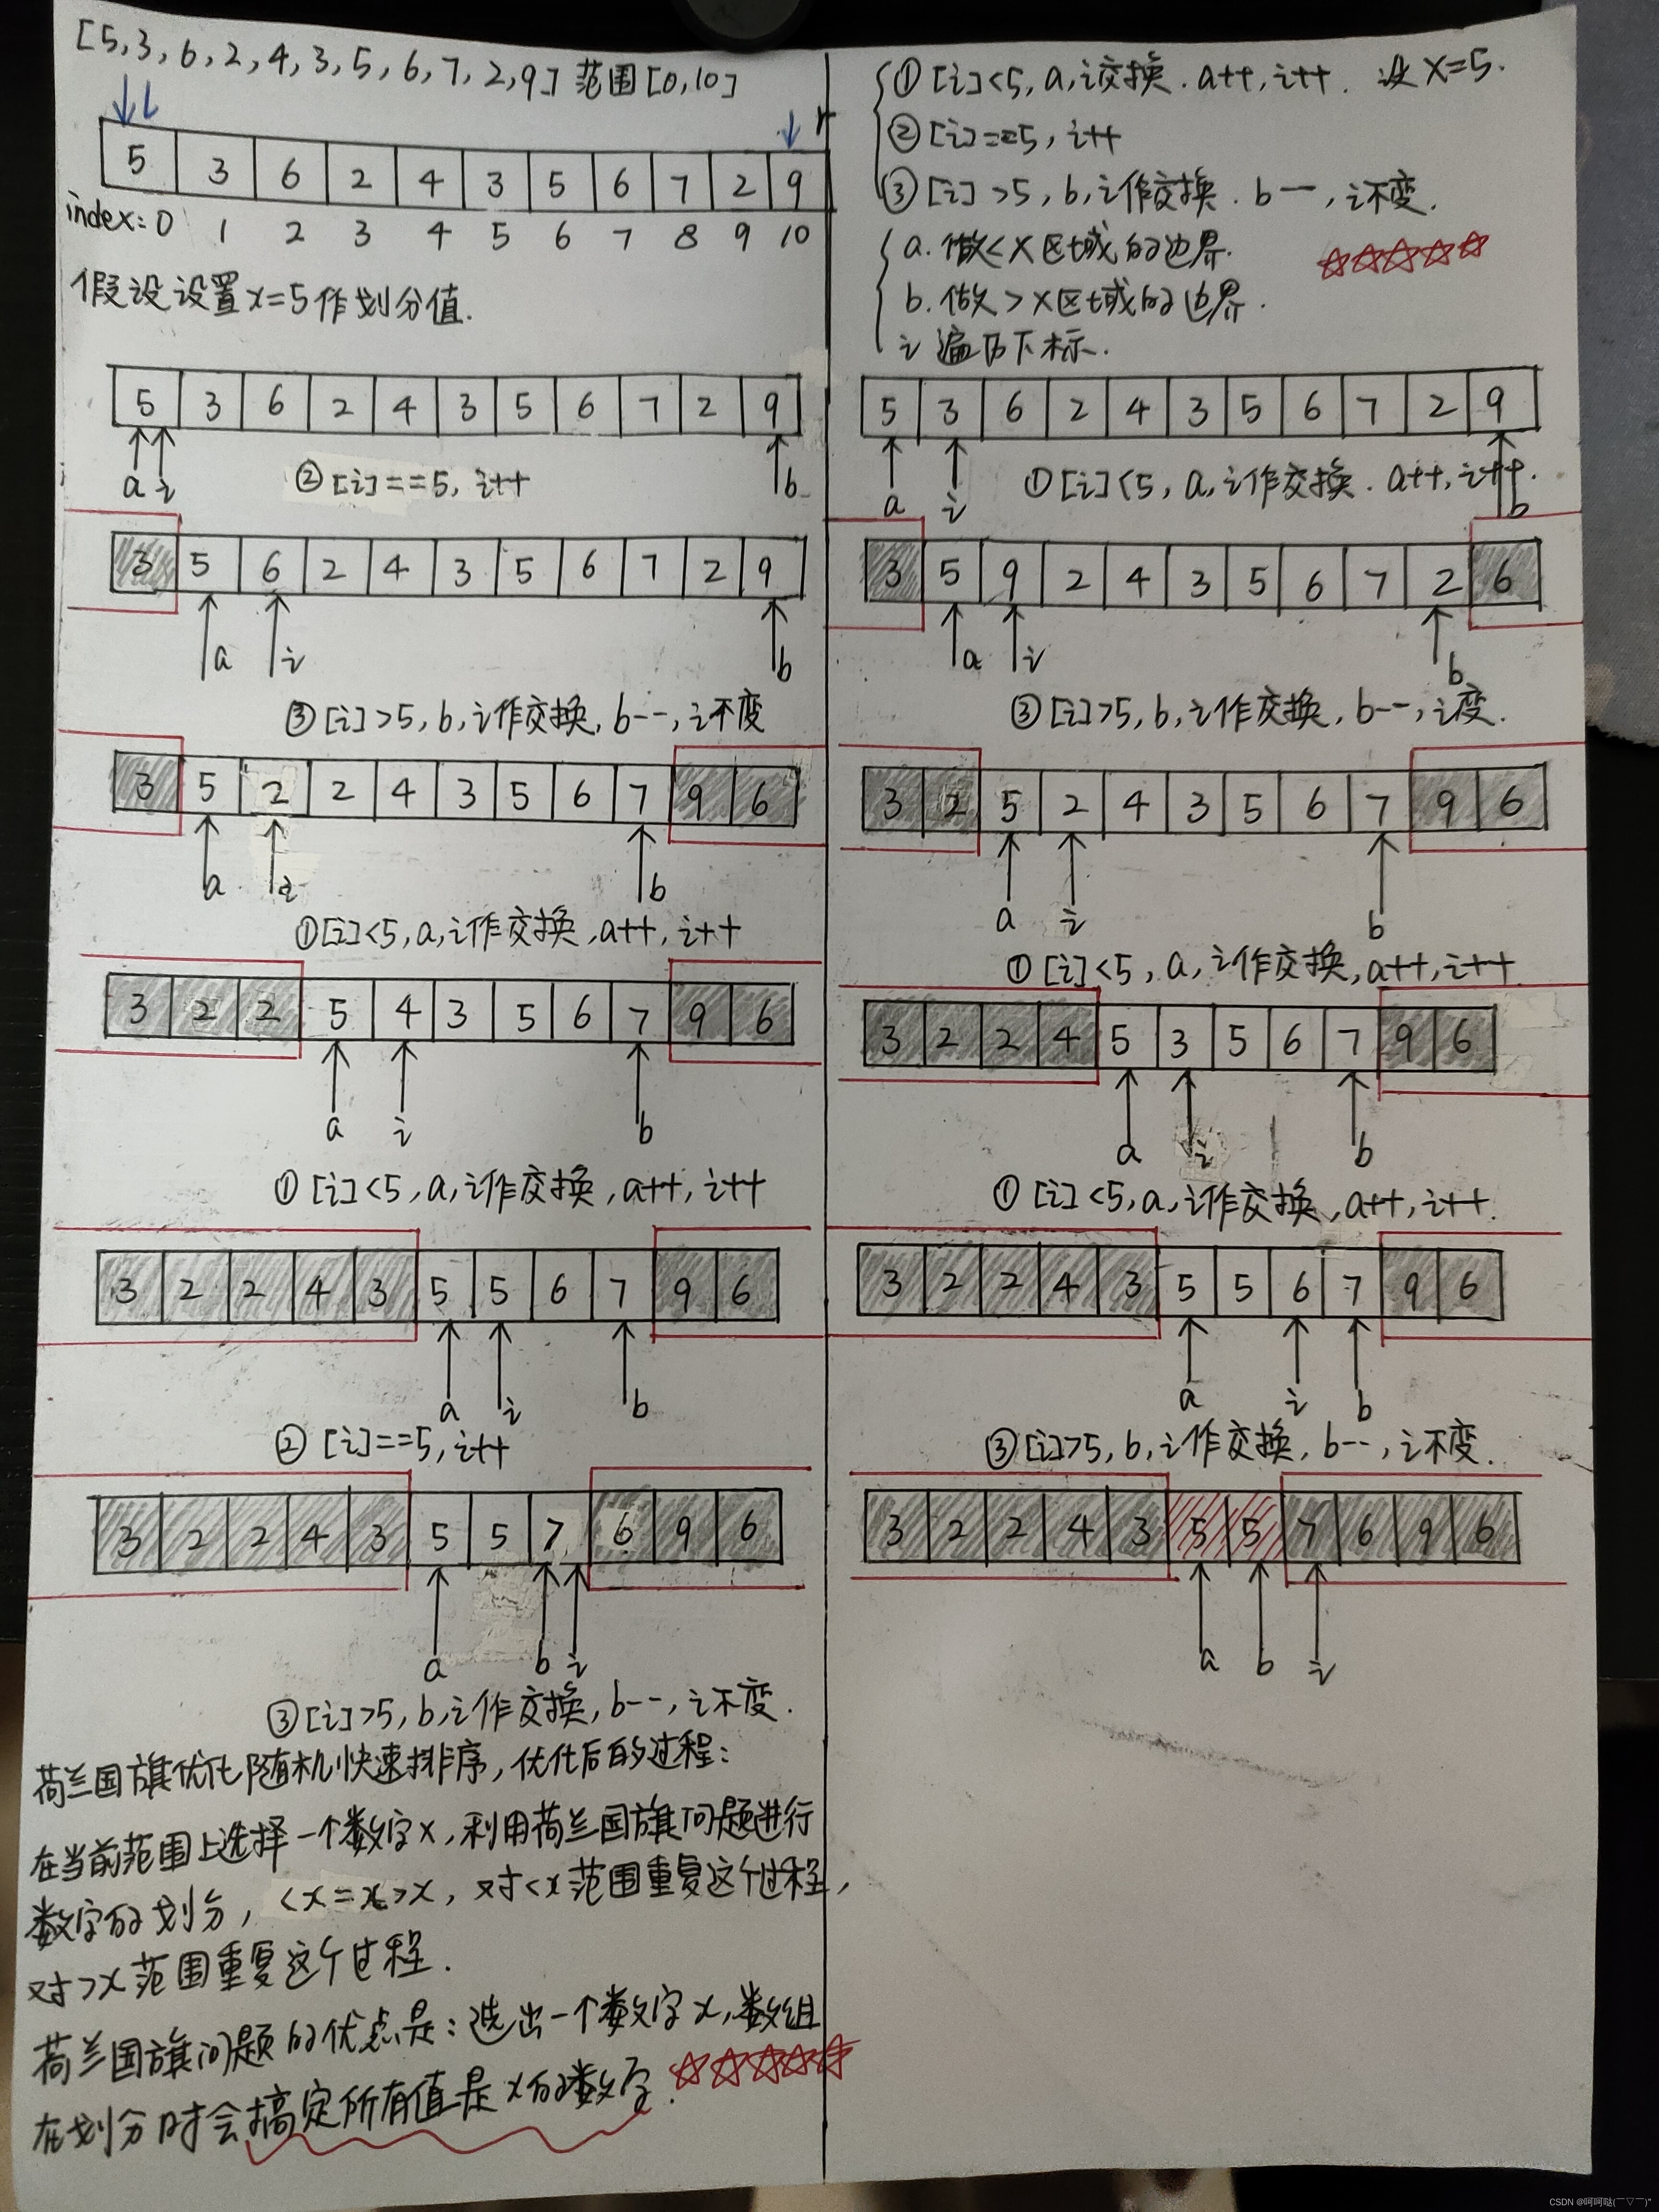 [5,3,6,2,4,3,5,6,7,2,9] 范围[0,10]
l r
5 3 6 2 4 3 5 6 7 2 9
index: 0 1 2 3 4 5 6 7 8 9 10
假设设置x=5作划分值.
①[i]<5, a,i交换. a++, i++. 设 x=5.
②[i]==5, i++
③[i]>5, b,i作交换. b--, i不变.
a. 做<x区域的边界.
b. 做>x区域的边界.
i 遍历下标.
5 3 6 2 4 3 5 6 7 2 9
a i b
②[i]==5, i++
5 3 6 2 4 3 5 6 7 2 9
a i b
①[i]<5, a,i作交换. a++, i++.
3 5 6 2 4 3 5 6 7 2 9
a i b
③[i]>5, b,i作交换, b--, i不变
3 5 9 2 4 3 5 6 7 2 6
a i b
③[i]>5, b,i作交换, b--, i变.
3 5 2 2 4 3 5 6 7 9 6
a i b
①[i]<5, a,i作交换, a++, i++
3 2 5 2 4 3 5 6 7 9 6
a i b
①[i]<5, a,i作交换, a++, i++
3 2 2 5 4 3 5 6 7 9 6
a i b
①[i]<5, a,i作交换, a++, i++
3 2 2 4 5 3 5 6 7 9 6
a i b
①[i]<5, a,i作交换, a++, i++.
3 2 2 4 3 5 5 6 7 9 6
a i b
②[i]==5, i++
3 2 2 4 3 5 5 6 7 9 6
a i b
③[i]>5, b,i作交换, b--, i不变.
3 2 2 4 3 5 5 7 6 9 6
a b i
③[i]>5, b,i作交换, b--, i不变.
3 2 2 4 3 5 5 7 6 9 6
a b i
荷兰国旗优化随机快速排序, 优化后的过程:
在当前范围上选择一个数字x, 利用荷兰国旗问题进行
数字的划分, <x =x >x, 对<x范围重复这个过程,
对>x范围重复这个过程.
荷兰国旗问题的优点是: 选出一个数字x, 数组
在划分时会搞定所有值是x的数字.
CSDN @呵呵哒(￣▽￣)"